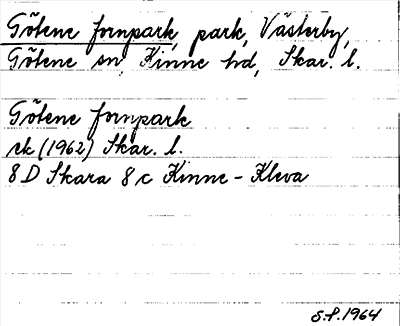 Götene fornpark, park, Västerby,
Götene sn, Kinne hd, Skar. l.
Götene fornpark
ek (1962) Skar. l.
8 D Skara 8 c Kinne - Kleva
S.F. 1964